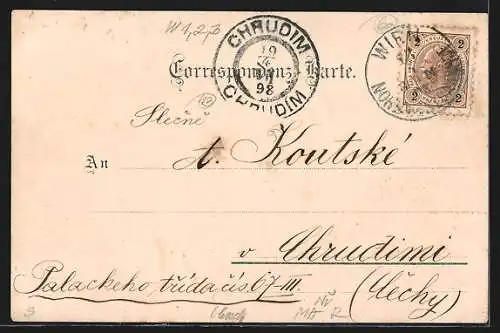 W 1,2,
CHRUDIM
19
98
CHRUDIM
WIEN
2 2
2 2
Correspondenz-Karte.
Slečně
An A. Koutské
v Chrudimi
Palackeho třída čís. 67-III. (Čechy)